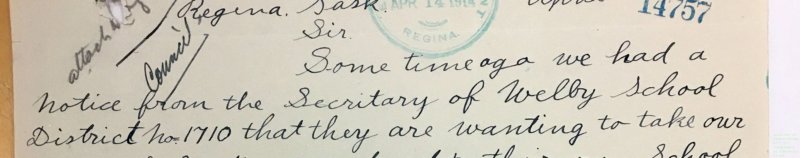 Regina. Sask.
APR 14 1914
REGINA
14757
Sir.
attach
Council
Some time ago we had a
Notice from the Secritary of Welby School
District No. 1710 that they are wanting to take our
School